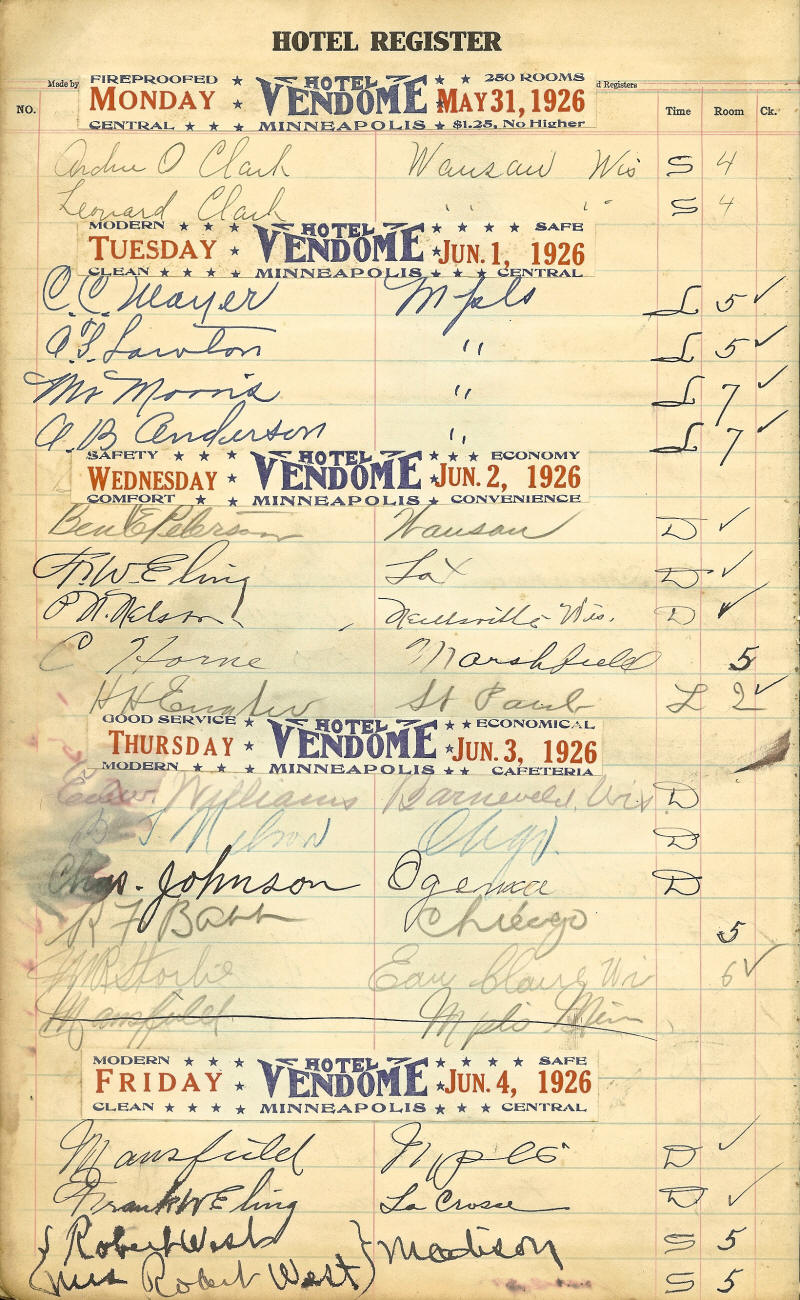 HOTEL REGISTER
Made by
d Registers
NO. Time Room Ck.
FIREPROOFED HOTEL 250 ROOMS
MONDAY VENDOME MAY 31, 1926
CENTRAL MINNEAPOLIS $1.25, No Higher
Archie O Clark Wausau Wis S 4
Leonard Clark " " " S 4
MODERN HOTEL SAFE
TUESDAY VENDOME JUN. 1, 1926
CLEAN MINNEAPOLIS CENTRAL
C. C. Mayer Mpls L 5 ✓
Lawton " L 5 ✓
Mr Morris " L 7 ✓
A B Anderson " L 7 ✓
SAFETY HOTEL ECONOMY
WEDNESDAY VENDOME JUN. 2, 1926
COMFORT MINNEAPOLIS CONVENIENCE
Ben E Peterson Wausau D ✓
F. W Eling LaX D ✓
P. N. Nelson Neillsville Wis. D ✓
C Horne Marshfield 5
H H St Paul L 2 ✓
GOOD SERVICE HOTEL ECONOMICAL
THURSDAY VENDOME JUN. 3, 1926
MODERN MINNEAPOLIS CAFETERIA
Edw. Williams Barneveld, Wis D
Nelson Chgo. D
Chas. Johnson Ogema D
R F Babb Chicago 5
Eau Claire Wis 6 ✓
Mansfield Mpls Minn
MODERN HOTEL SAFE
FRIDAY VENDOME JUN. 4, 1926
CLEAN MINNEAPOLIS CENTRAL
Mansfield Mpls D ✓
Frank W Eling La Crosse D ✓
Robert West Madison S 5
Mrs Robert West S 5